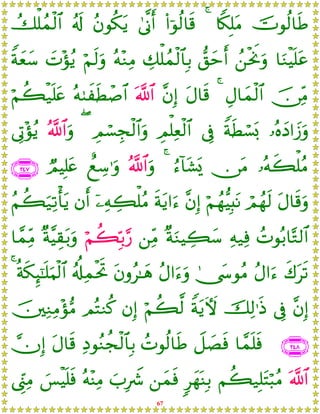 طَالُوتَ مَلِكًا ۚ قَالُوٓا۟ أَنَّىٰ يَكُونُ لَهُ ٱلْمُلْكُ
عَلَيْنَا وَنَحْنُ أَحَقُّ بِٱلْمُلْكِ مِنْهُ وَلَمْ يُؤْتَ سَعَةً
مِّنَ ٱلْمَالِ ۚ قَالَ إِنَّ ٱللَّهَ ٱصْطَفَىٰهُ عَلَيْكُمْ
وَزَادَهُۥ بَسْطَةً فِى ٱلْعِلْمِ وَٱلْجِسْمِ ۖ وَٱللَّهُ يُؤْتِى
مُلْكَهُۥ مَن يَشَآءُ ۚ وَٱللَّهُ وَٰسِعٌ عَلِيمٌ ٢٤٧
وَقَالَ لَهُمْ نَبِيُّهُمْ إِنَّ ءَايَةَ مُلْكِهِۦٓ أَن يَأْتِيَكُمُ
ٱلتَّابُوتُ فِيهِ سَكِينَةٌ مِّن رَّبِّكُمْ وَبَقِيَّةٌ مِّمَّا
تَرَكَ ءَالُ مُوسَىٰ وَءَالُ هَٰرُونَ تَحْمِلُهُ ٱلْمَلَٰٓئِكَةُ ۚ
إِنَّ فِى ذَٰلِكَ لَءَايَةً لَّكُمْ إِن كُنتُم مُّؤْمِنِينَ
٢٤٨ فَلَمَّا فَصَلَ طَالُوتُ بِٱلْجُنُودِ قَالَ إِنَّ
ٱللَّهَ مُبْتَلِيكُم بِنَهَرٍ فَمَن شَرِبَ مِنْهُ فَلَيْسَ مِنِّى
67